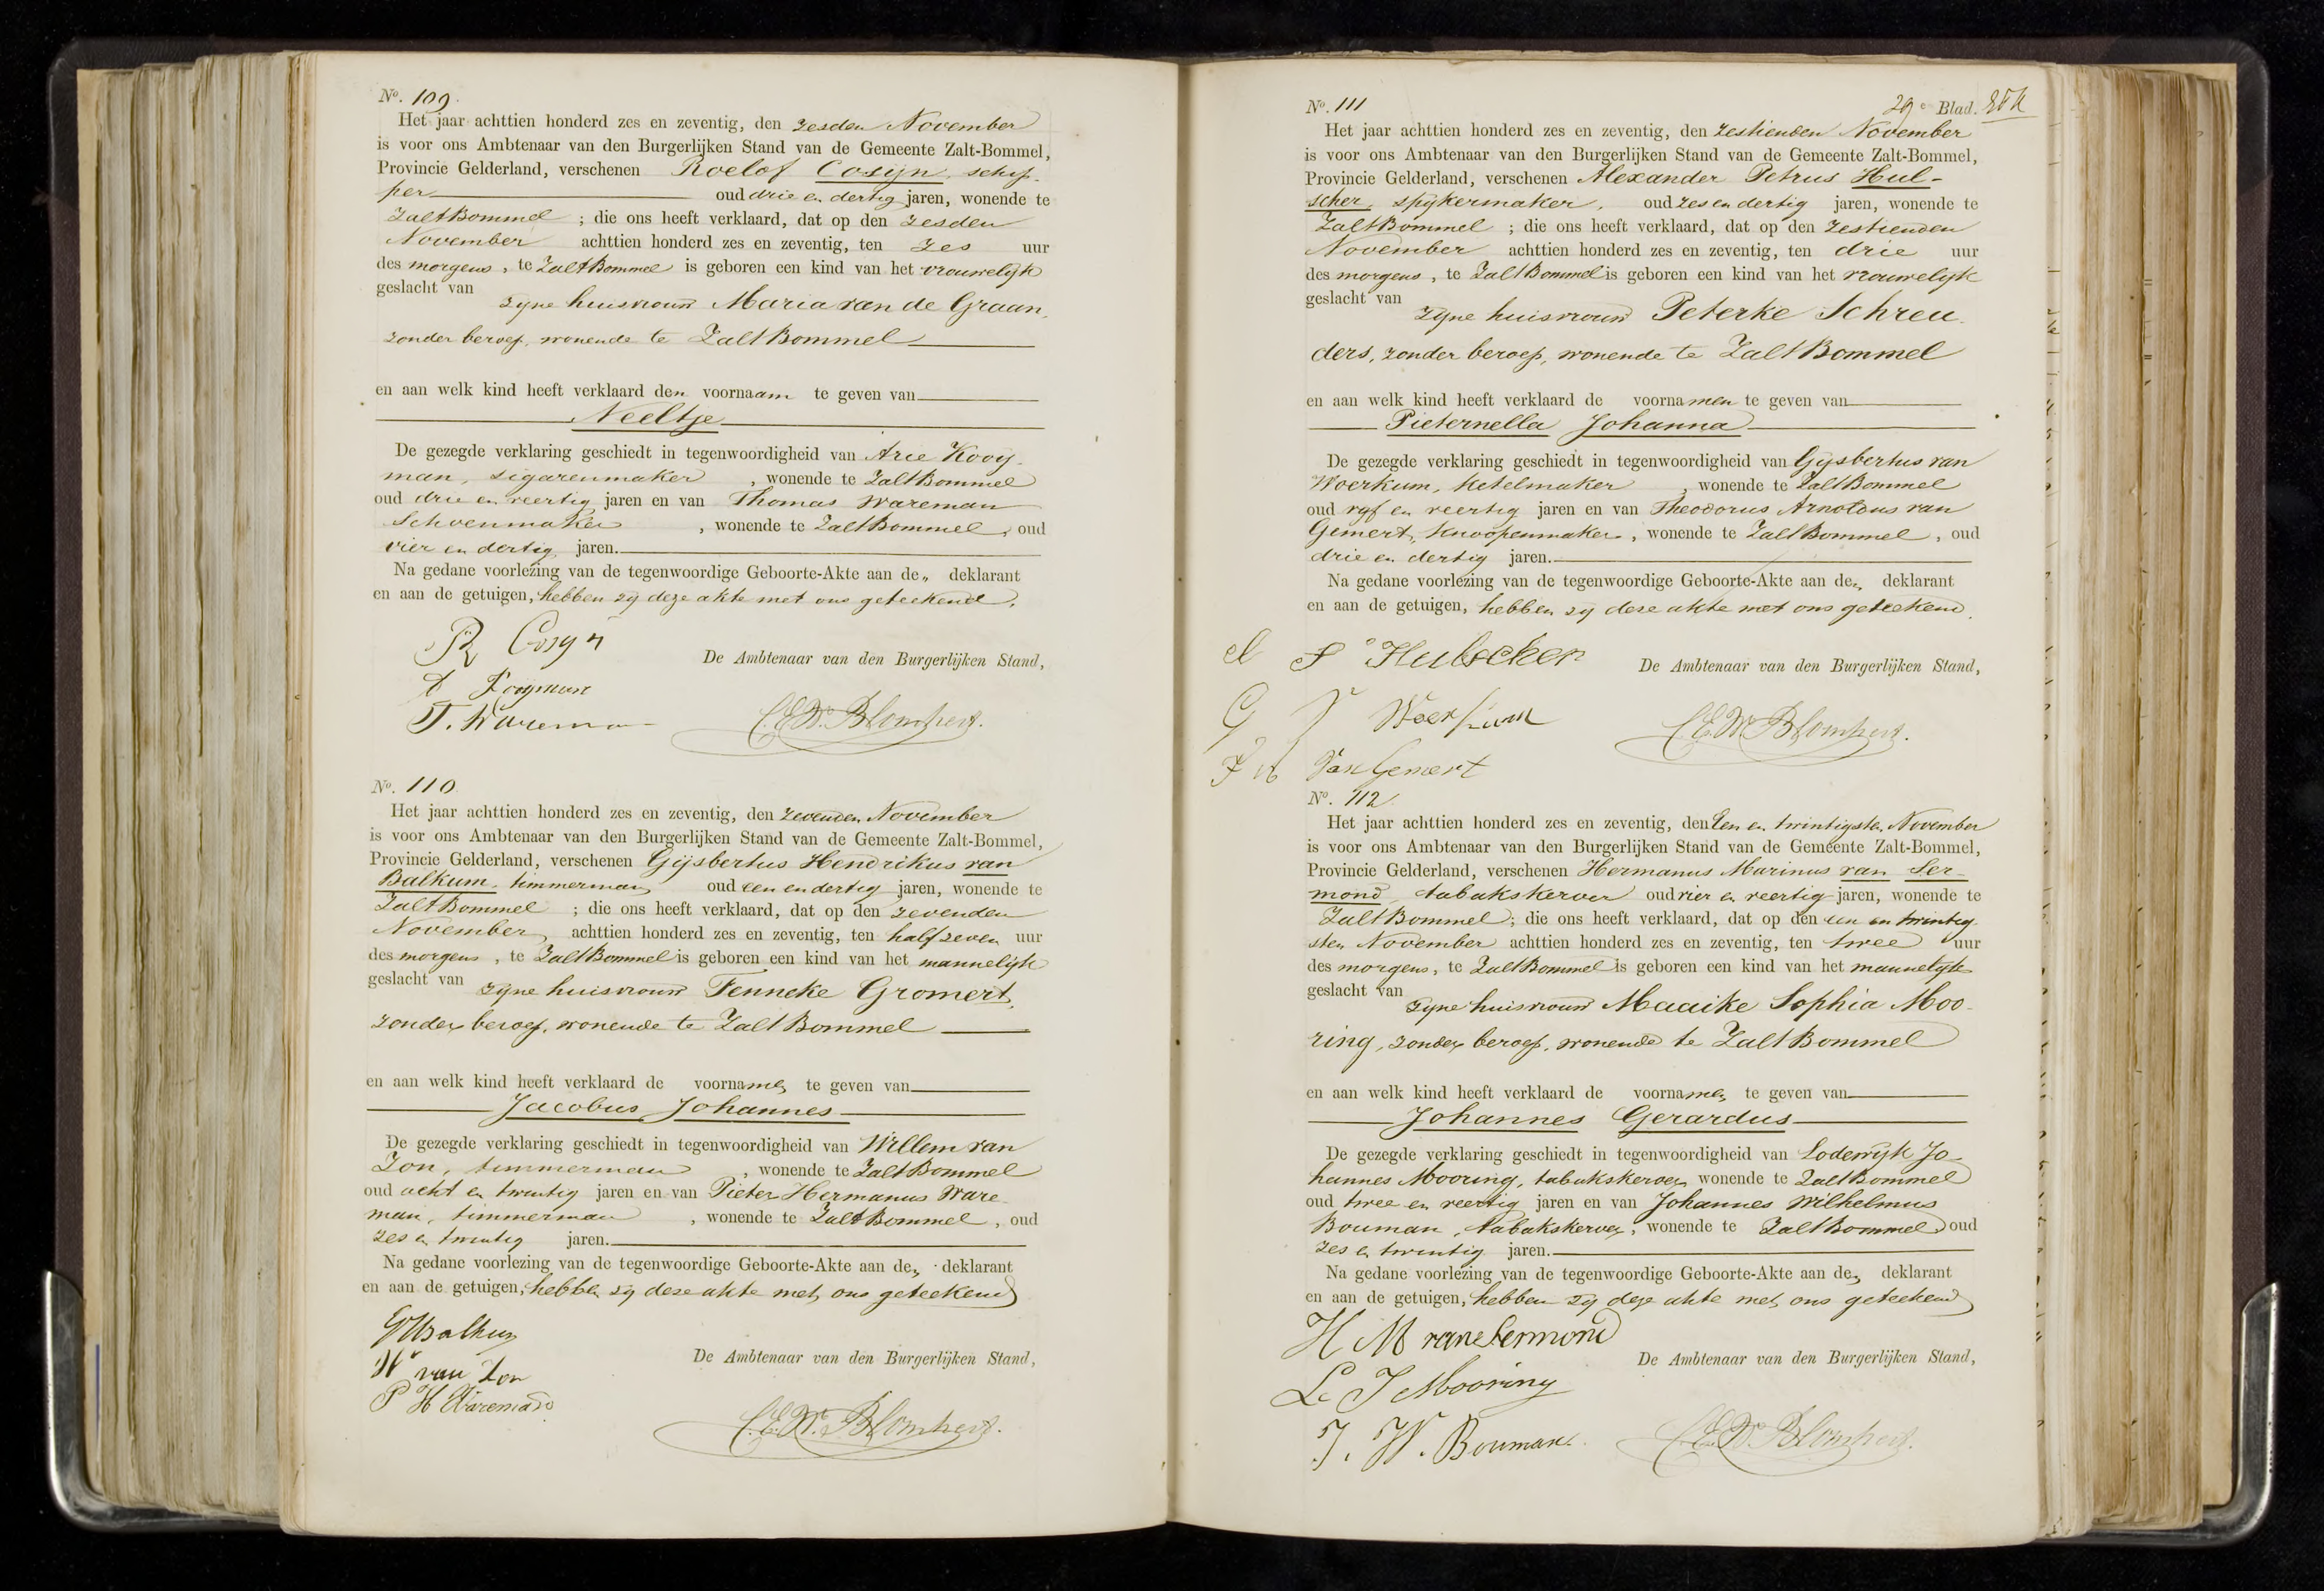 No. 109.
Het jaar achttien honderd zes en zeventig, den zesden November
is voor ons Ambtenaar van den Burgerlijken Stand van de Gemeente Zalt-Bommel,
Provincie Gelderland, verschenen Roelof Cosijn, schip-
per oud drie en dertig jaren, wonende te
ZaltBommel ; die ons heeft verklaard, dat op den zesden
November achttien honderd zes en zeventig, ten zes uur
des morgens, te ZaltBommel is geboren een kind van het vrouwelijk
geslacht van zijne huisvrouw Maria van de Graan,
zonder beroep, wonende te ZaltBommel
en aan welk kind heeft verklaard den voornaam te geven van
Neeltje
De gezegde verklaring geschiedt in tegenwoordigheid van Arie Kooij-
man, sigarenmaker , wonende te ZaltBommel
oud drie en veertig jaren en van Thomas Wareman
Schoenmaker , wonende te ZaltBommel, oud
vier en dertig jaren.
Na gedane voorlezing van de tegenwoordige Geboorte-Akte aan de„ deklarant
en aan de getuigen, hebben zij deze akte met ons geteekend.
R Cosyn
De Ambtenaar van den Burgerlijken Stand,
A Kooyman
T. Wareman
C.E.W. Blomhert.
No. 110
Het jaar achttien honderd zes en zeventig, den zevenden November
is voor ons Ambtenaar van den Burgerlijken Stand van de Gemeente Zalt-Bommel,
Provincie Gelderland, verschenen Gijsbertus Hendrikus van
Balkum, timmerman oud een en dertig jaren, wonende te
ZaltBommel ; die ons heeft verklaard, dat op den zevenden
November, achttien honderd zes en zeventig, ten half zeven uur
des morgens, te ZaltBommel is geboren een kind van het mannelijk
geslacht van zijne huisvrouw Fenneke Gromert,
zonder beroep, wonende te ZaltBommel
en aan welk kind heeft verklaard de voornamen te geven van
Jacobus Johannes
De gezegde verklaring geschiedt in tegenwoordigheid van Willem van
Zon, timmerman , wonende te ZaltBommel
oud acht en twintig jaren en van Pieter Hermanus Ware-
man, timmerman , wonende te ZaltBommel, oud
zes en twintig jaren.
Na gedane voorlezing van de tegenwoordige Geboorte-Akte aan de„ deklarant
en aan de getuigen, hebben zij deze akte met ons geteekend
De Ambtenaar van den Burgerlijken Stand,
W van Zon
P H Wareman
C.E.W. Blomhert.
No. 111 29e Blad.
Het jaar achttien honderd zes en zeventig, den zestienden November
is voor ons Ambtenaar van den Burgerlijken Stand van de Gemeente Zalt-Bommel,
Provincie Gelderland, verschenen Alexander Petrus Hul-
scher, spijkermaker, oud zes en dertig jaren, wonende te
ZaltBommel ; die ons heeft verklaard, dat op den zestienden
November achttien honderd zes en zeventig, ten drie uur
des morgens, te ZaltBommel is geboren een kind van het vrouwelijk
geslacht van zijne huisvrouw Peterke Schreu-
ders, zonder beroep, wonende te ZaltBommel
en aan welk kind heeft verklaard de voornamen te geven van
Pieternella Johanna
De gezegde verklaring geschiedt in tegenwoordigheid van Gijsbertus van
Woerkum, Ketelmaker , wonende te ZaltBommel
oud vijf en veertig jaren en van Theodorus Arnoldus van
Gemert, Knoopenmaker, wonende te ZaltBommel, oud
drie en dertig jaren.
Na gedane voorlezing van de tegenwoordige Geboorte-Akte aan de„ deklarant
en aan de getuigen, hebben zij deze akte met ons geteekend.
A P Hulscher
De Ambtenaar van den Burgerlijken Stand,
G V Woerkum
C.E.W. Blomhert.
T A Van Gemert
No. 112.
Het jaar achttien honderd zes en zeventig, den Een en twintigsten November
is voor ons Ambtenaar van den Burgerlijken Stand van de Gemeente Zalt-Bommel,
Provincie Gelderland, verschenen Hermanus Marinus van Ser-
mond, tabakskerver oud vier en veertig jaren, wonende te
ZaltBommel; die ons heeft verklaard, dat op den een en twintig-
sten November achttien honderd zes en zeventig, ten twee uur
des morgens, te ZaltBommel is geboren een kind van het mannelijk
geslacht van zijne huisvrouw Maaike Sophia Moo-
ring, zonder beroep, wonende te ZaltBommel
en aan welk kind heeft verklaard de voornamen te geven van
Johannes Gerardus
De gezegde verklaring geschiedt in tegenwoordigheid van Lodewijk Jo-
hannes Mooring, tabakskerver, wonende te ZaltBommel
oud twee en veertig jaren en van Johannes Wilhelmus
Bouman, tabakskerver, wonende te ZaltBommel oud
zes en twintig jaren.
Na gedane voorlezing van de tegenwoordige Geboorte-Akte aan de„ deklarant
en aan de getuigen, hebben zij deze akte met ons geteekend
H M van Sermond
De Ambtenaar van den Burgerlijken Stand,
L J Mooring
J. W. Bouman.
C.E.W. Blomhert.